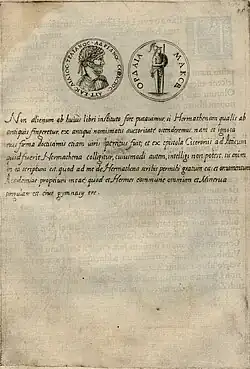 ΑΥΤ ΚΑΙϹ
ΤΡΑΙΑΝΟϹ ΑΔΡΙΑΝΟϹ
ΟΡΔΑΙΑ ΜΑΚΕΔ
Non alienum ab huius libri instituto fore putavimus, si Hermathenam qualis ab
antiquis fingeretur, ex antiqui nomismatis auctoritate ostenderemus. nam et ignota
eius forma doctissimis etiam viris ipsis fuit, et ex epistola Ciceronis ad Atticum
quid fuerit Hermathena colligitur, cuiusmodi autem, intelligi non potest, sic enim
in ea scriptum est. quod ad me de Hermathena scribis permihi gratum est; et ornamentum
Academiae proprium meae, quod et Hermes commune omnium et Minerva
singulare est eius gymnasij